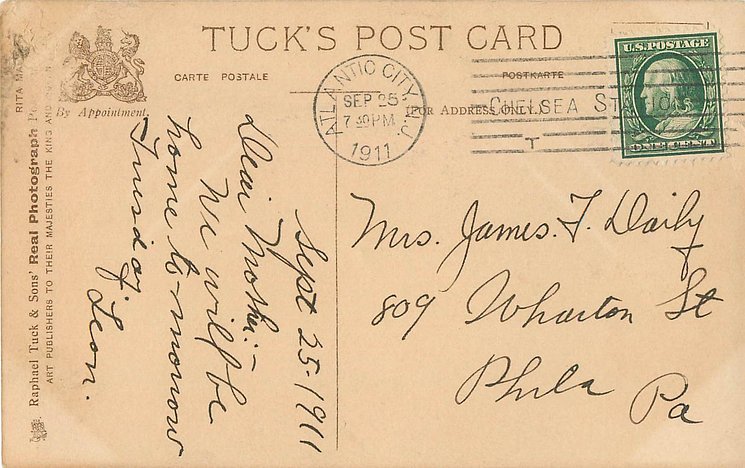 TUCK'S POST CARD
CARTE POSTALE
POSTKARTE
(FOR ADDRESS ONLY.)
By Appointment.
ATLANTIC CITY, N.J.
SEP 25
7 30 PM
1911
CHELSEA STATION
T
U.S. POSTAGE
ONE CENT
Sept 25-1911
Dear Mother:-
We will be
home to-morrow
Tuesday.
Leon.
Mrs. James. F. Daily
809 Wharton St
Phila Pa
Raphael Tuck & Sons' Real Photograph
ART PUBLISHERS TO THEIR MAJESTIES THE KING AND
RITA